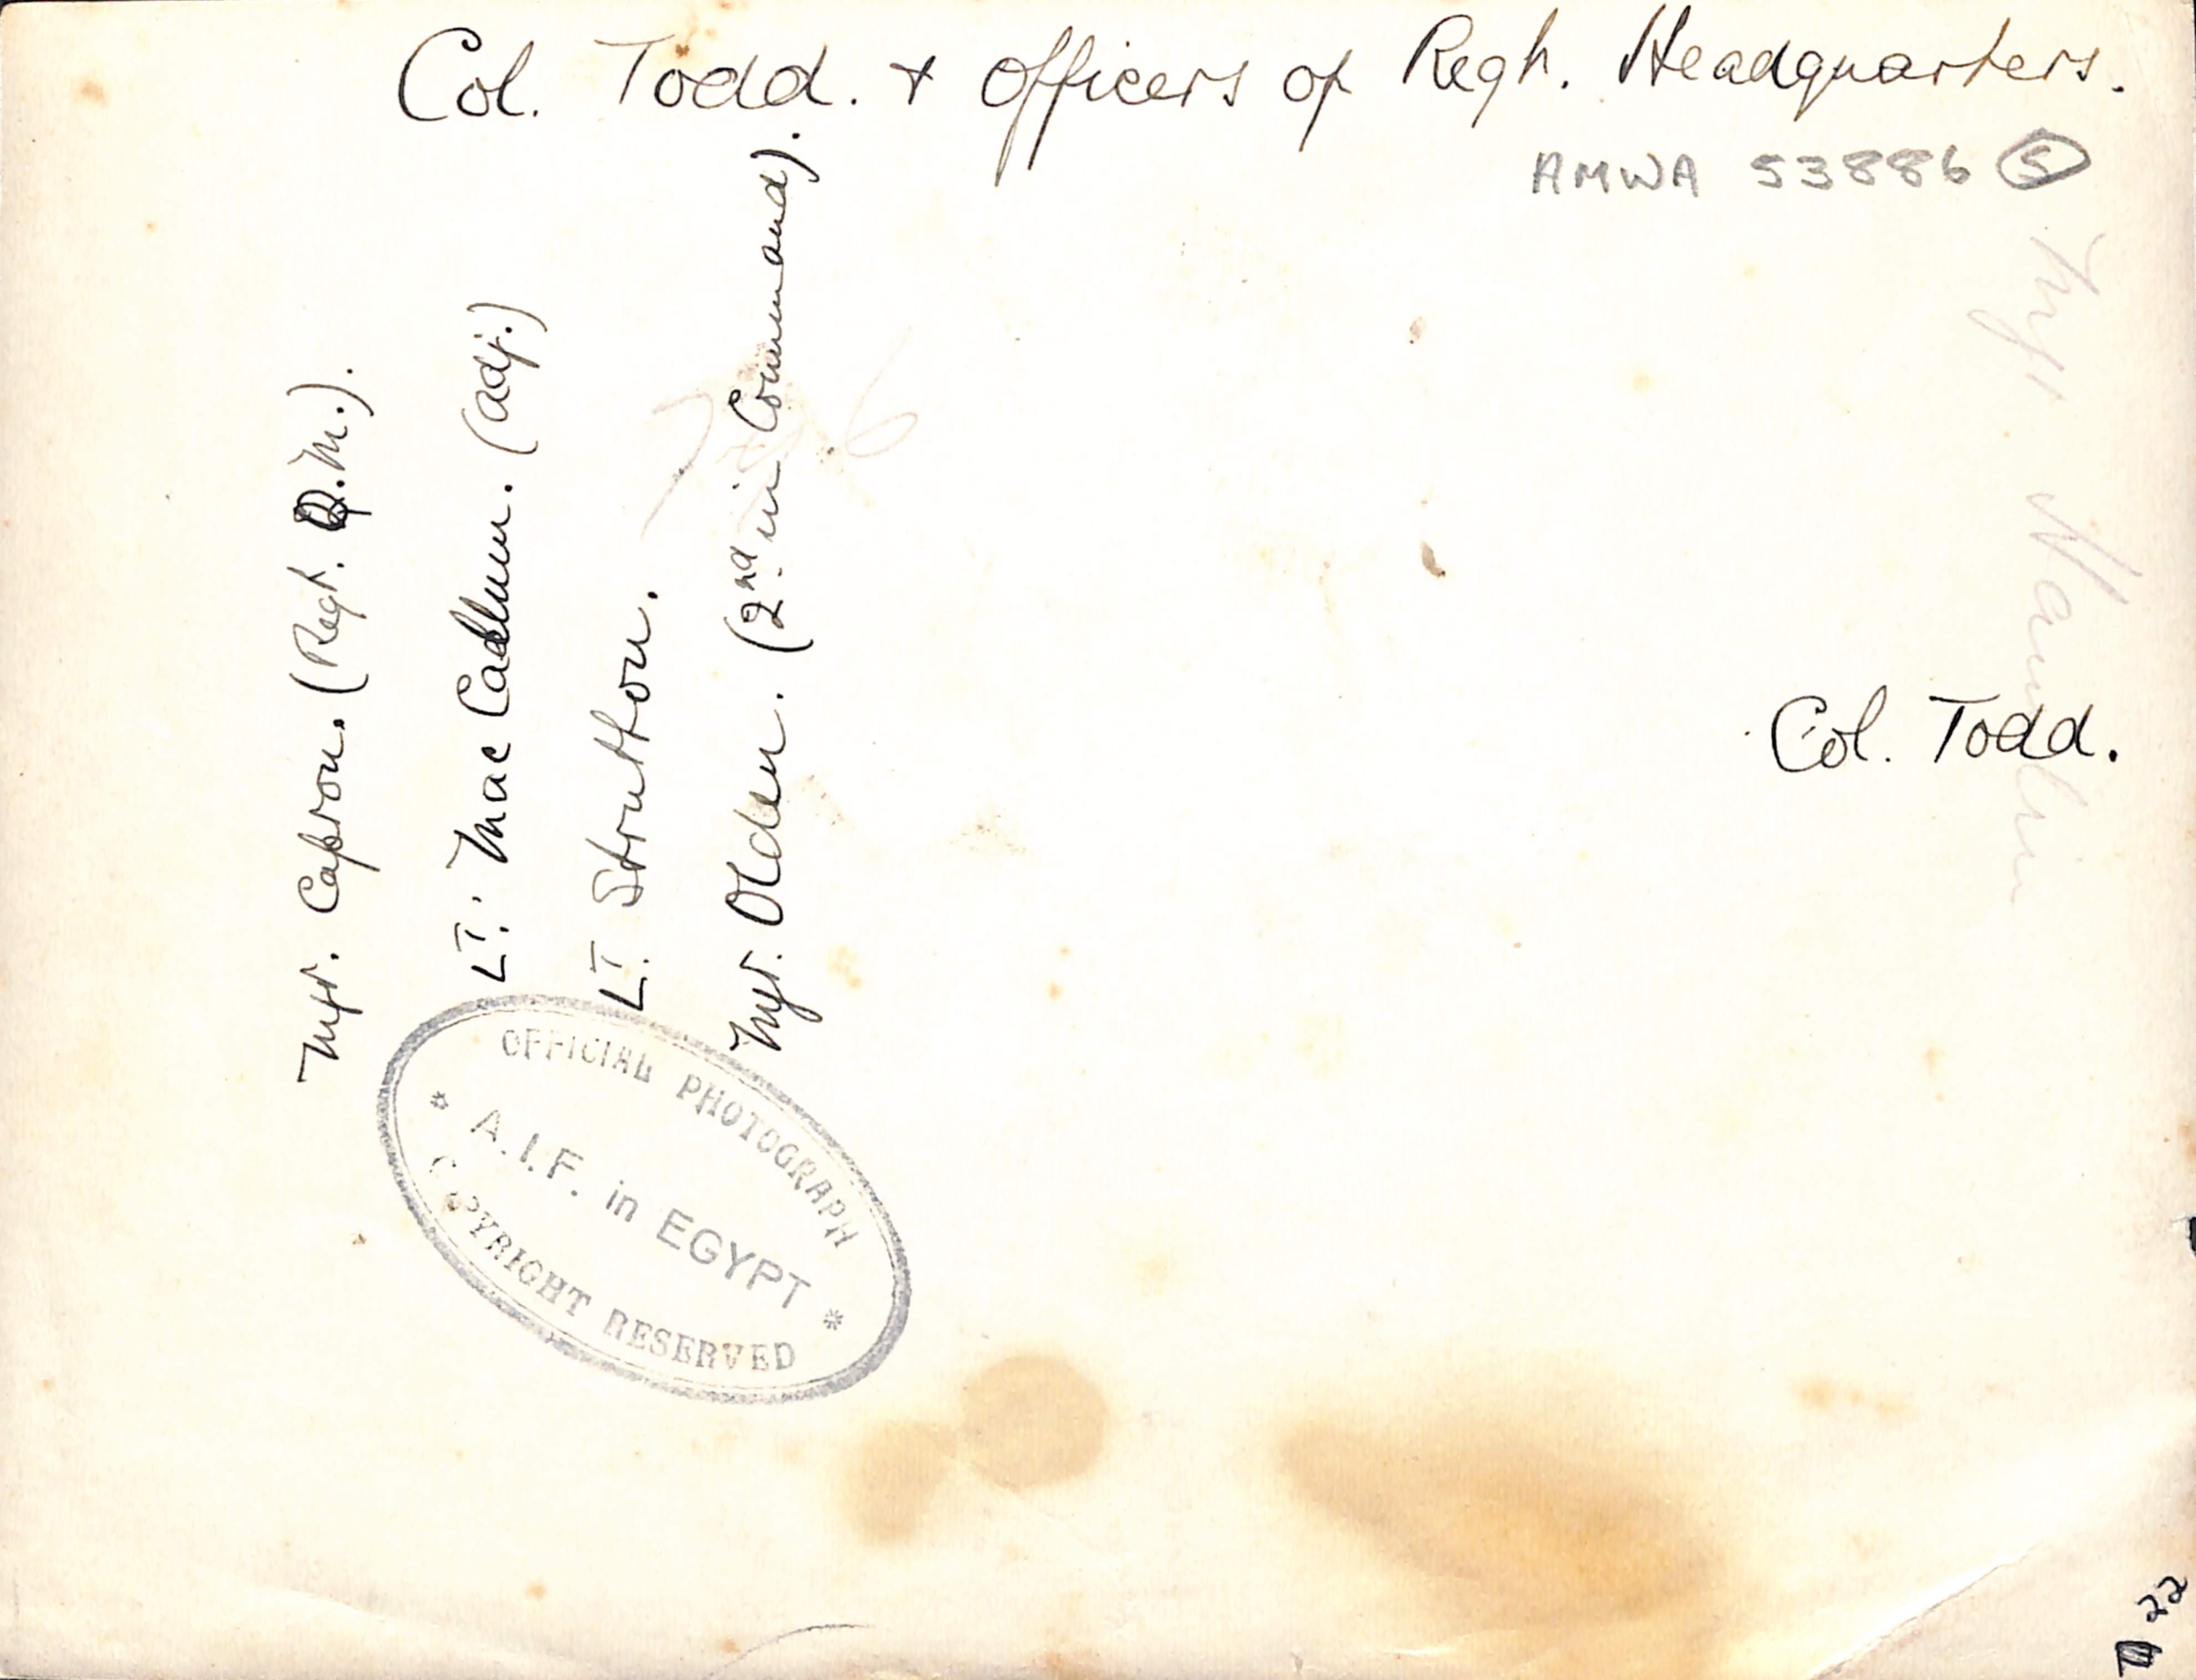 Col. Todd. + Officers of Regt. Headquarters.
AMWA 53886 5
Mjr. Capron. (Regt. Q.M.).
LT. Mac Callum. (adj.)
LT. Strutton.
Mjr. Olden. (2nd in Command).
Col. Todd.
OFFICIAL PHOTOGRAPH
* A.I.F. in EGYPT *
COPYRIGHT RESERVED
22